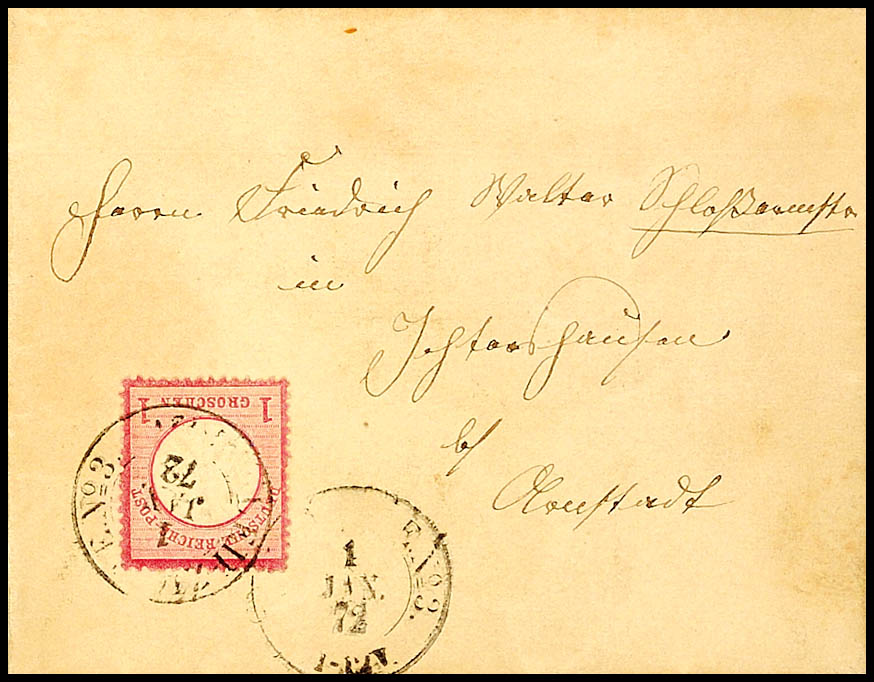 Herrn Friedrich Walter Schloßermstr
in
Ichtershausen
b/
Arnstadt
1 GROSCHEN 1
DEUTSCHE REICHS-POST
E.No 3.
1
JA
72
II
E.No 3.
1
JAN.
72